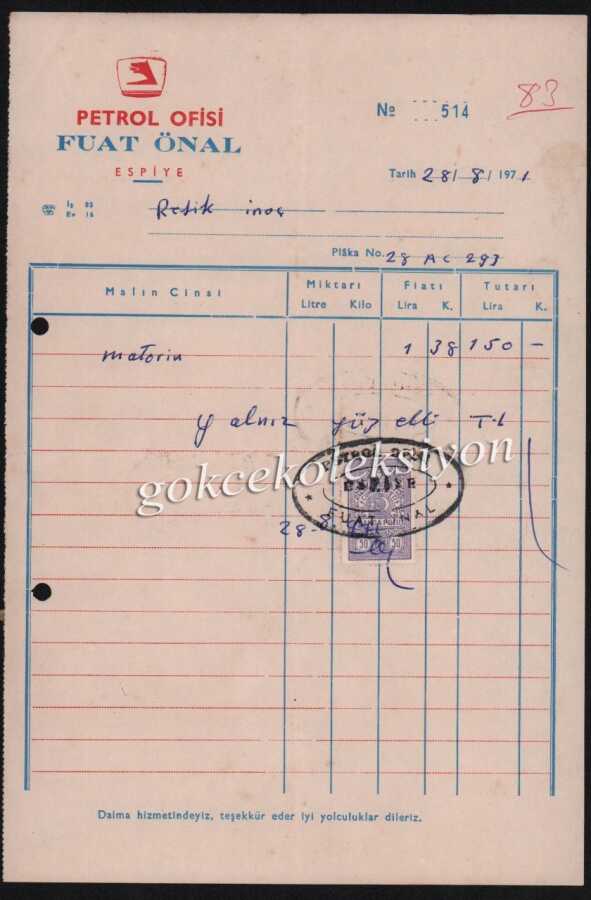 83
PETROL OFİSİ
FUAT ÖNAL
ESPİYE
№ 514
Tarih 28/8/1971
İş 83
Ev 16
Refik inaç
Plâka No. 28 AC 293
Malın Cinsi Miktarı Fiatı Tutarı
Litre Kilo Lira K. Lira K.
matorin 1 38 150 -
Yalnız yüz elli TL
gokcekoleksiyon
PETROL OFİSİ
ESPİYE
FUAT ÖNAL
28-8-971
50 50
Daima hizmetindeyiz, teşekkür eder iyi yolculuklar dileriz.